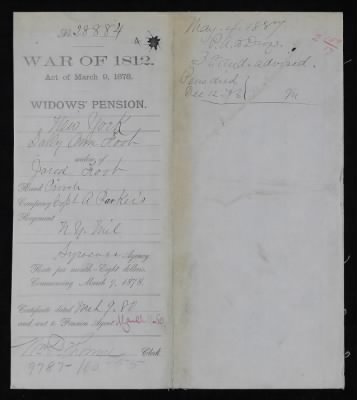 No 28884
WAR OF 1812.
Act of March 9, 1878.
WIDOWS' PENSION.
New York
Sally Ann Root
widow of
Jared Root
Rank Private
Company Capt A Parker's
Regiment
N.Y. Mil
Syracuse Agency
Rate per month—Eight dollars.
Commencing March 9, 1878.
Certificate dated Mch 9. 80
and sent to Pension Agent
Clerk.
9787-100
May 4, 1887
P.A.
3d Aud advised.
Pens died
Dec 12